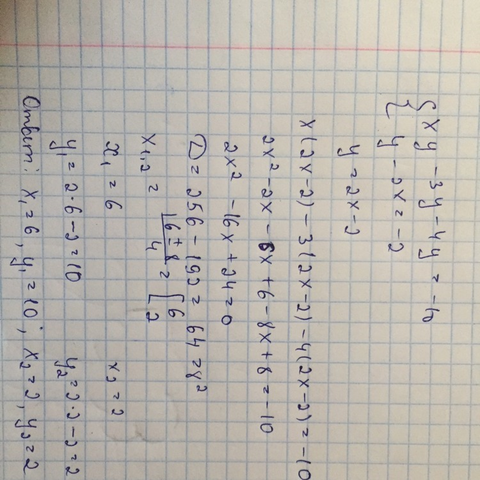 { xy - 3y - 4y = -10
y - 2x = -2
y = 2x - 2
x(2x-2) - 3(2x-2) - 4(2x-2) = -10
2x² - 2x - 6x + 6 - 8x + 8 = -10
2x² - 16x + 24 = 0
D = 256 - 192 = 64 = 8²
x₁,₂ = 16 ± 8 / 4 = [ 6 2
x₁ = 6 x₂ = 2
y₁ = 2·6 - 2 = 10 y₂ = 2·2 - 2 = 2
Ответ: x₁ = 6, y₁ = 10; x₂ = 2, y₂ = 2